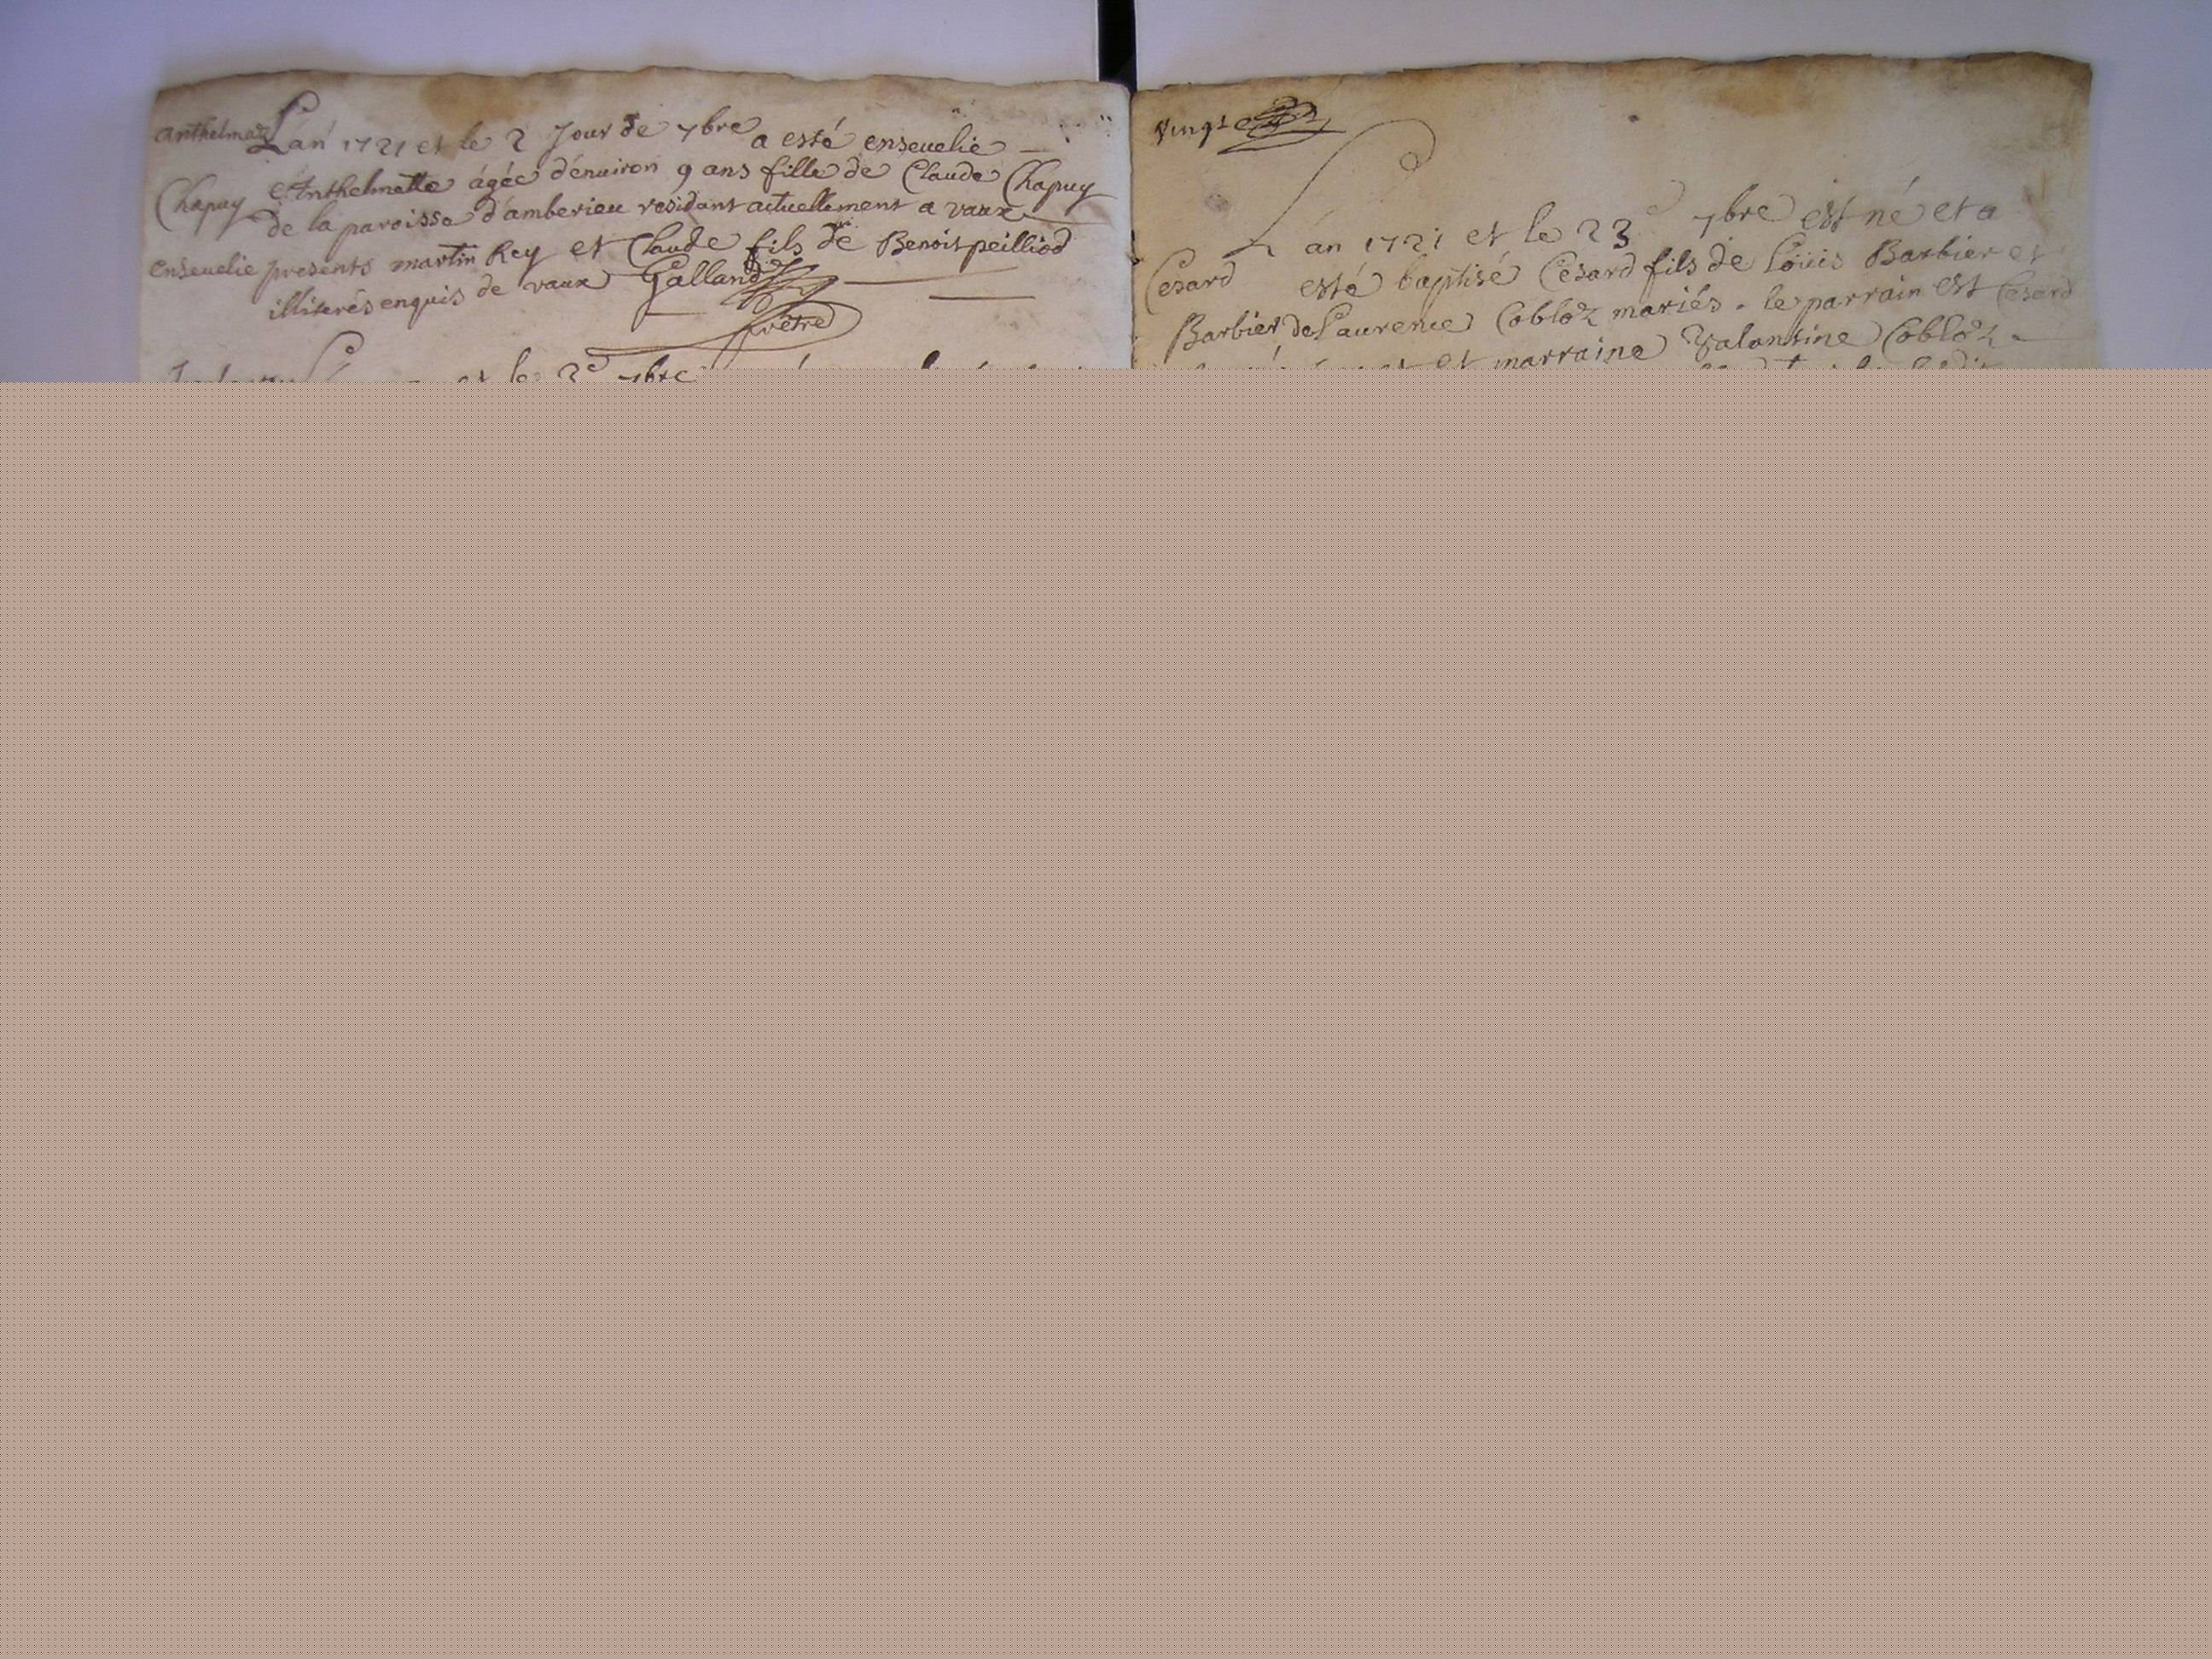 anthelmaz Lan 1721 et le 2 Jour de 7bre a esté enseuelie
Chapuy Anthelmette agée d'enuiron 9 ans fille de Claude Chapuy
de la paroisse d'amberieu residant actuellement a vaux
enseuelie presents martin Rey et Claude fils de Benoit peilliod
illiterés enquis de vaux Galland
prêtre
et le 7bre
vingt
Lan 1721 et le 23e 7bre est né et a
Cesard esté baptisé Cesard fils de Loüis Barbier et
Barbier de Laurence Cobloz mariés - le parrain est Cesard
et marraine Valantine Cobloz